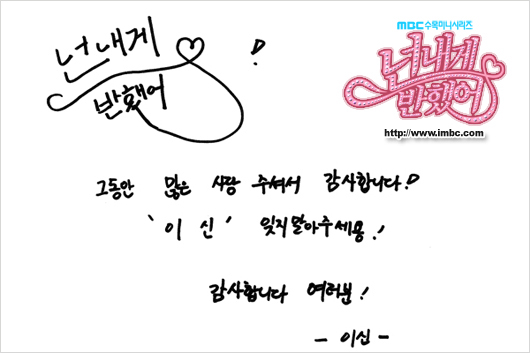 넌 내게
반했어
!
MBC 수목미니시리즈
넌 내게
반했어
http://www.imbc.com
그동안 많은 사랑 주셔서 감사합니다!
'이 신' 잊지말아주세용!
감사합니다 여러분!
- 이신 -